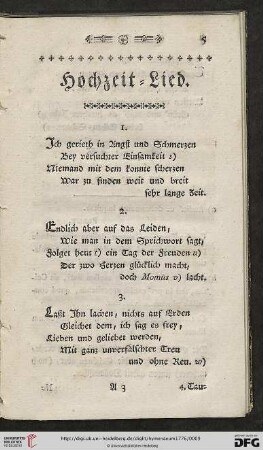 5
Hochzeit-Lied.
1.
Ich gerieth in Angst und Schmerzen
Bey versuchter Einsamkeit s)
Niemand mit dem konnte scherzen
War zu finden weit und breit
sehr lange Zeit.
2.
Endlich aber auf das Leiden,
Wie man in dem Sprichwort sagt,
Folget heut t) ein Tag der Freuden u)
Der zwo Herzen glücklich macht,
doch Momus v) lacht.
3.
Laßt Ihn lachen, nichts auf Erden
Gleichet dem, ich sag es frey,
Lieben und geliebet werden,
Mit ganz unverfälschter Treu
und ohne Reu. w)
A 3
4. Tau-
http://digi.ub.uni-heidelberg.de/diglit/
UNIVERSITÄTS-
BIBLIOTHEK
HEIDELBERG
gefördert durch die
DFG